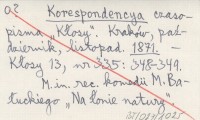 Korespondencya czaso-
pisma "Kłosy". Kraków, paź-
dziernik, listopad. 1871. -
Kłosy 13, nr 335: 348-349.
M. in. rec. komedii M. Ba-
łuckiego „Na łonie natury".